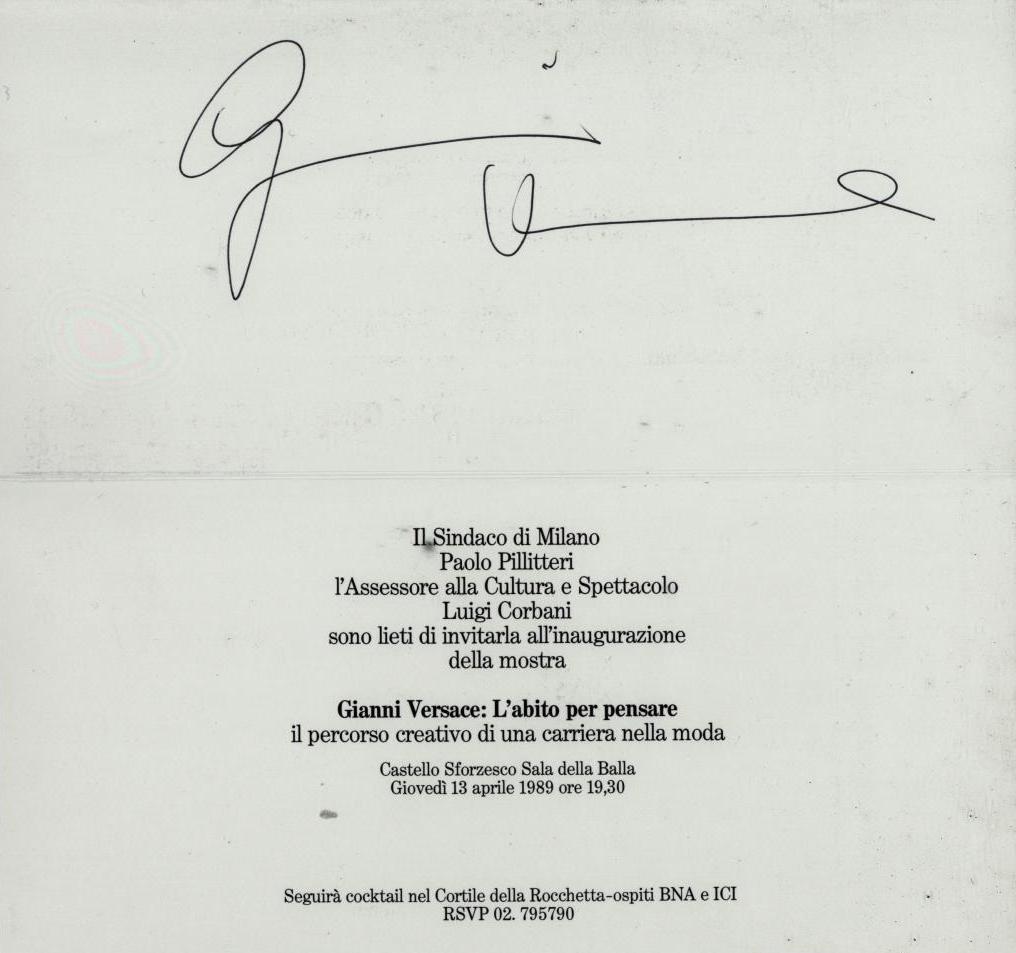 Gianni
Versace
Il Sindaco di Milano
Paolo Pillitteri
l'Assessore alla Cultura e Spettacolo
Luigi Corbani
sono lieti di invitarla all'inaugurazione
della mostra
Gianni Versace: L'abito per pensare
il percorso creativo di una carriera nella moda
Castello Sforzesco Sala della Balla
Giovedì 13 aprile 1989 ore 19,30
Seguirà cocktail nel Cortile della Rocchetta-ospiti BNA e ICI
RSVP 02. 795790